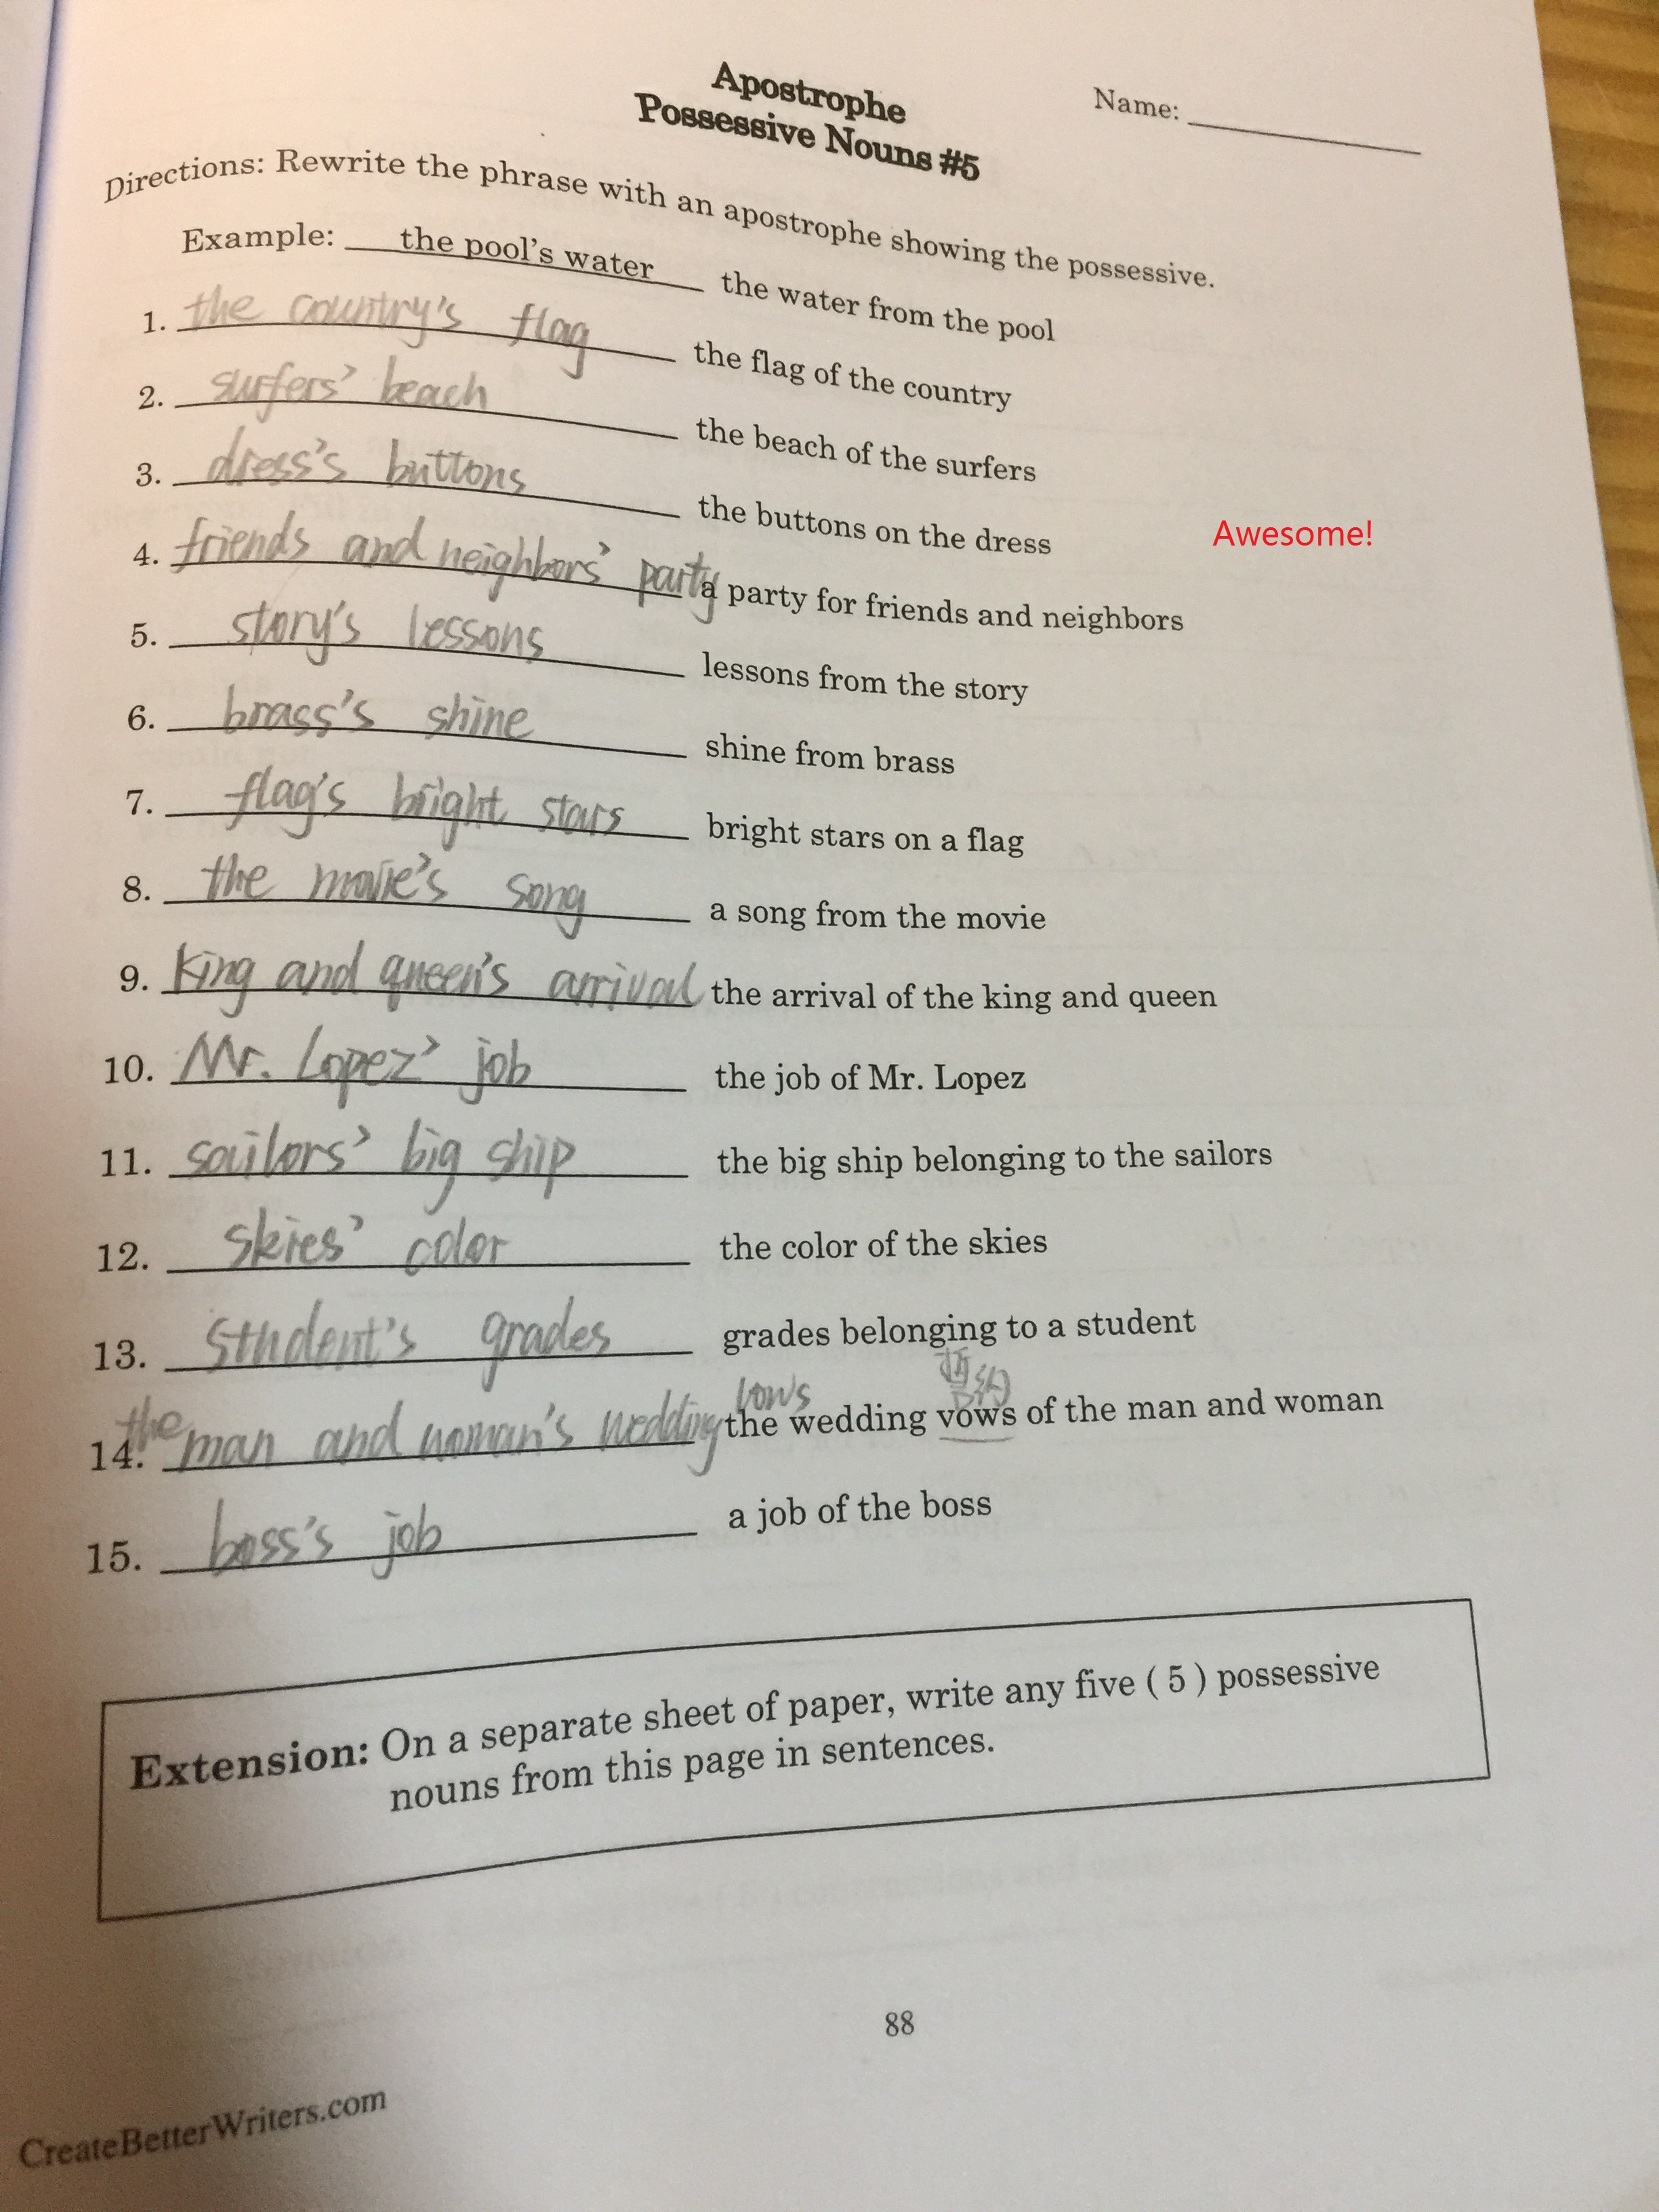 Apostrophe
Possessive Nouns #5
Name:
Directions: Rewrite the phrase with an apostrophe showing the possessive.
Example: the pool's water the water from the pool
1. the country's flag the flag of the country
2. surfers' beach the beach of the surfers
3. dress's buttons the buttons on the dress
Awesome!
4. friends and neighbors' party a party for friends and neighbors
5. story's lessons lessons from the story
6. brass's shine shine from brass
7. flag's bright stars bright stars on a flag
8. the movie's song a song from the movie
9. king and queen's arrival the arrival of the king and queen
10. Mr. Lopez' job the job of Mr. Lopez
11. sailors' big ship the big ship belonging to the sailors
12. skies' color the color of the skies
13. student's grades grades belonging to a student
誓约
14. the man and woman's wedding vows the wedding vows of the man and woman
15. boss's job a job of the boss
Extension: On a separate sheet of paper, write any five ( 5 ) possessive
nouns from this page in sentences.
88
CreateBetterWriters.com